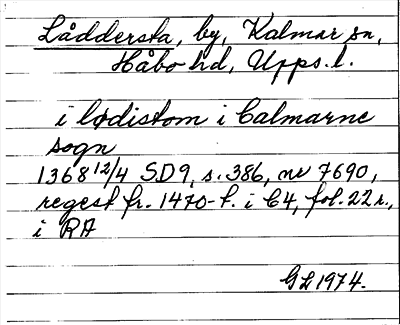 Låddersta, by, Kalmar sn,
Håbo hd, Upps. l.
i lødistom i Calmarne
sogn
1368 12/4 SD9, s. 386, nr 7690,
regest fr. 1470-t. i C4, fol. 22 r.,
i RA
GL 1974.